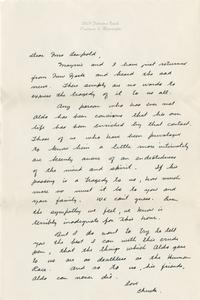 Dear Mrs Leopold
Mayrie and I have just returned
from New York and heard the sad
news. There simply are no words to
express the tragedy of it to us all.
Any person who has ever met
Aldo has been conscious that his own
life has been enriched by that contact.
Those of us who have been privileged
to know him a little more intimately
are keenly aware of an endebtedness
of the mind and spirit. If his
passing is a tragedy to us, how much
more so must it be to you and
your family. We can't guess. Even
the sympathy we feel, we know is
terribly inadequate for this hour.
But I do want to try to tell
you the best I can with this crude
pen, that the things which Aldo gave
to us are as deathless as the Human
Race. And as to us, his friends,
Aldo can never die.
Love
Chuck.